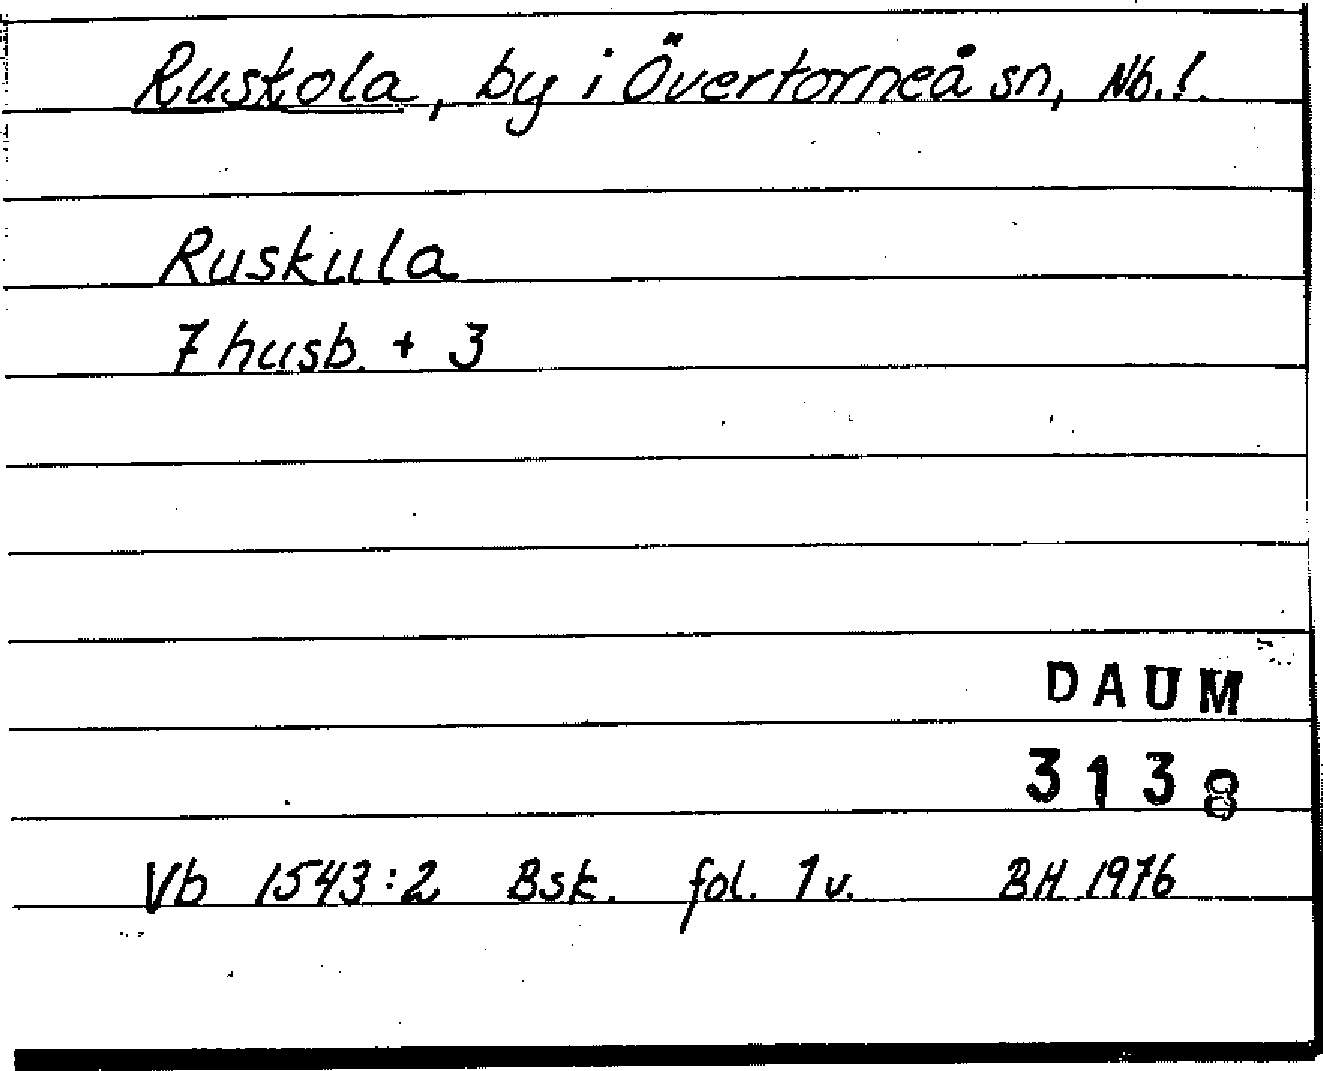 Ruskola, by i Övertorneå sn, Nb. l.
Ruskula
7 husb. + 3
DAUM
3138
Vb 1543:2 Bsk. fol. 1 v. BH 1976